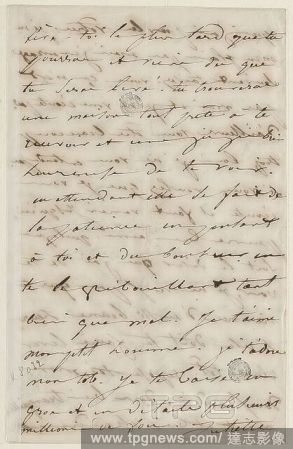 plus tard que tu
pourras et viens dès que
tu seras livré. tu trouveras
une maison tout prête à te
recevoir et une
heureuse de te voir.
en attendant elle se fait de
la patience en pensant
à toi et du bonheur en
te le gribouillant tant
bien que mal. Je t'aime
mon petit homme je t'adore
mon toto. Je te baise en
gros et en détail plusieurs
millions de fois
Juliette
TPG
www.tpgnews.com／達志影像